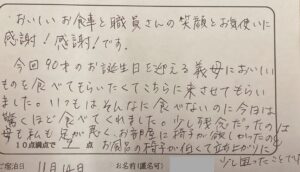 おいしいお食事と職員さんの笑顔とお気使いに
感謝!感謝!です。
今回90才のお誕生日を迎える義母においしい
ものを食べてもらいたくてこちらに来させてもらい
ました。いつもはそんなに食べないのに今日は
驚くほど食べてくれました。少し残念だったのは
母も私も足が悪く、お部屋に椅子が欲しかったのと
10点満点で 点 お風呂の椅子が低くて立ち上がりに
少し困ったことです
ご宿泊日 11月14日 お名前(匿名可)